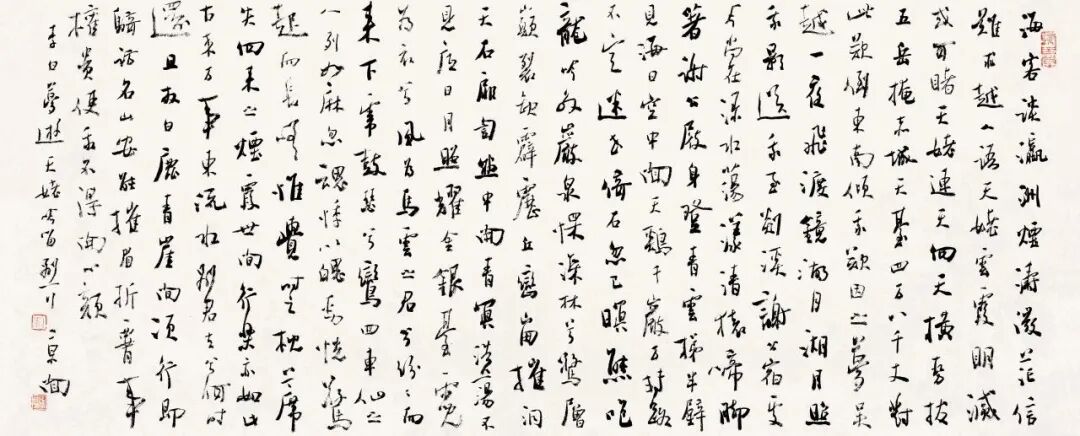 海客谈瀛洲煙濤微茫信
難求越人語天姥雲霞明滅
或可睹天姥連天向天橫勢拔
五岳掩赤城天臺四万八千丈對
此欲倒東南傾我欲因之夢吴
越一夜飛渡鏡湖月湖月照
我影送我至剡溪謝公宿處
今尚在渌水蕩漾清猿啼脚
著謝公屐身登青雲梯半壁
見海日空中聞天鷄千巖万轉路
不定迷花倚石忽已暝熊咆
龍吟殷巖泉慄深林兮驚層
巔裂缺霹靂丘巒崩摧洞
天石扉訇然中開青冥浩蕩不
見底日月照耀金銀臺霓
为衣兮風为馬雲之君兮紛紛而
來下虎鼓瑟兮鸞回車仙之
人列如麻忽魂悸以魄動怳驚
起而長嗟惟覺時之枕席
失向來之煙霞世間行樂亦如此
古來万事東流水別君去兮何時
還且放白鹿青崖間須行即
騎訪名山安能摧眉折腰事
權貴使我不得開心顏
李白夢遊天姥吟留別